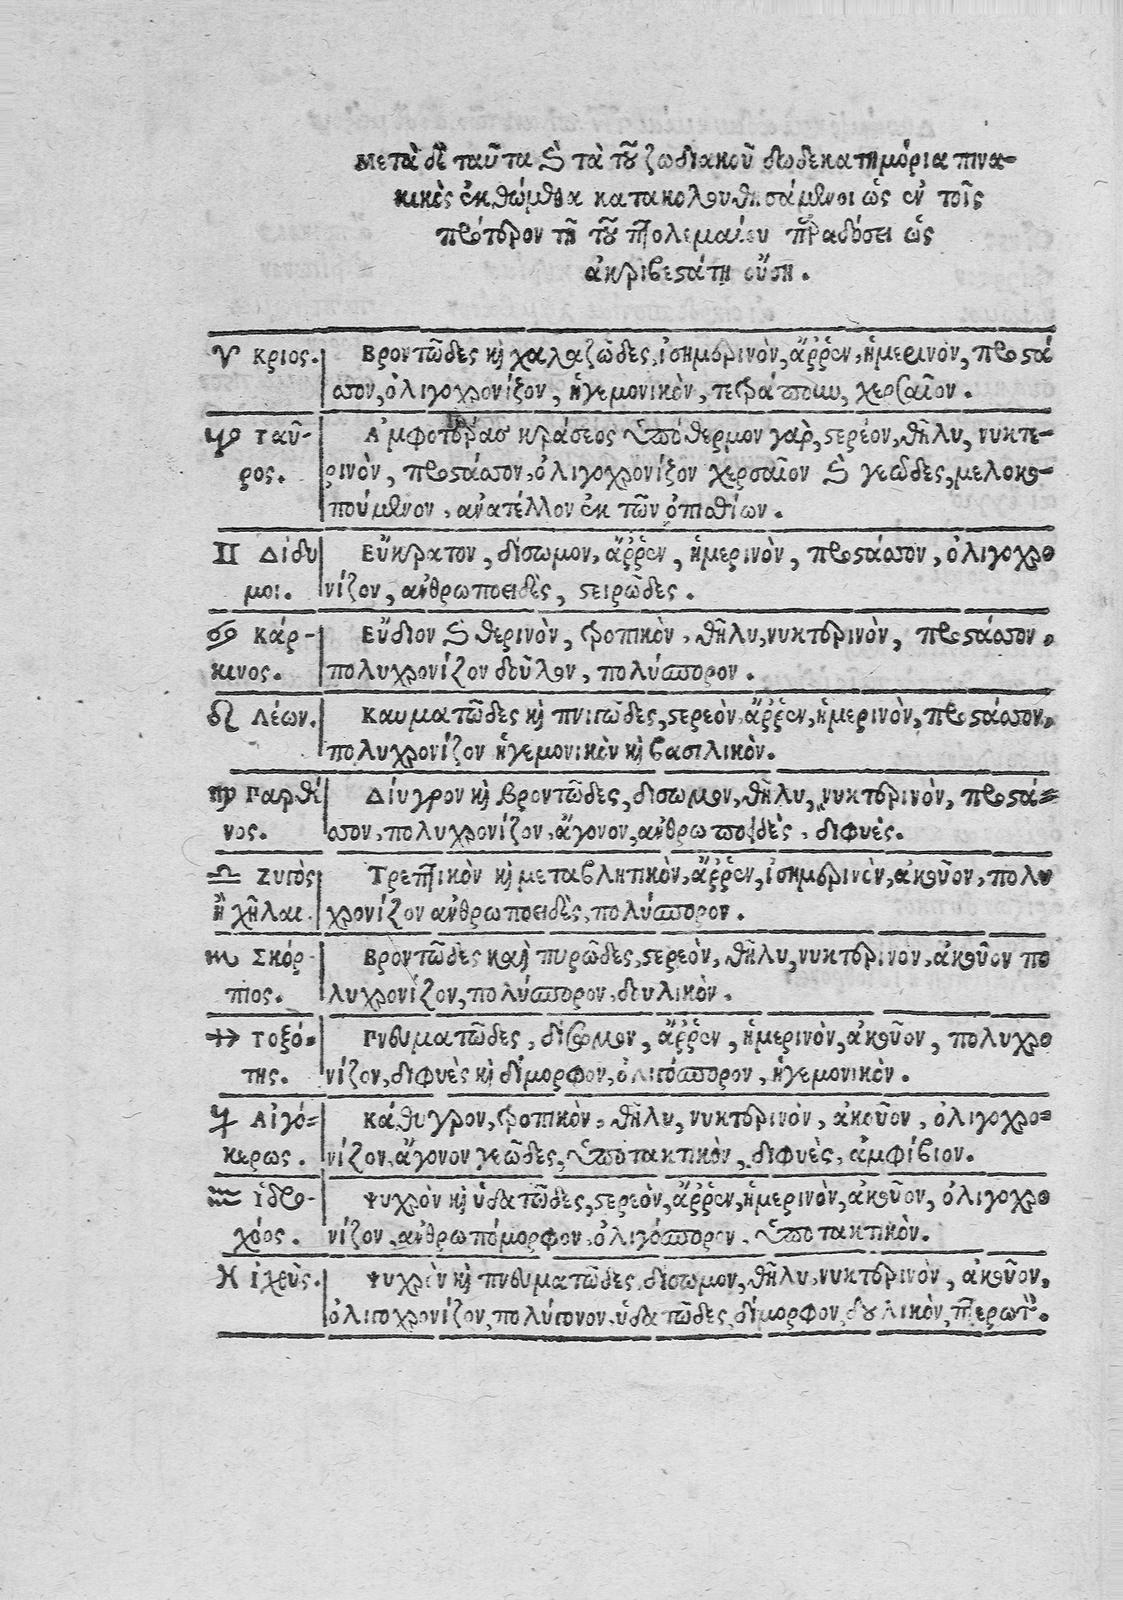 Μετὰ δὲ ταῦτα καὶ τὰ τοῦ ζωδιακοῦ δωδεκατημόρια πινα-
κικῶς ἐκθώμεθα κατακολουθησάμενοι ὡς ἐν τοῖς
πρότερον τῇ τοῦ Πτολεμαίου παραδόσει ὡς
ἀκριβεστάτῃ οὔσῃ.
♈ Κριος. Βροντῶδες καὶ χαλαζῶδες, ἰσημερινὸν, ἄῤῥεν, ἡμερινὸν, προστά
σσον, ὀλιγοχρονίζον, ἡγεμονικὸν, τετράπουν, χερσαῖον.
♉ Ταῦ- Ἀμφοτέρας κράσεος ὑπόθερμον γὰρ, στερέον, θῆλυ, νυκτε-
ρος. ρινὸν, προστάσσον, ὀλιγοχρονίζον χερσαῖον καὶ γεῶδες, μελοκο-
πούμενον, ἀνατέλλον ἐκ τῶν ὀπισθίων.
♊ Δίδυ Εὔκρατον, δίσωμον, ἄῤῥεν, ἡμερινὸν, προστάσσον, ὀλιγοχρο
μοι. νίζον, ἀνθρωποειδὲς, στειρῶδες.
♋ Κάρ- Εὔδιον καὶ θερινὸν, τροπικὸν, θῆλυ, νυκτερινὸν, προστάσσον,
κινος. πολυχρονίζον δοῦλον, πολύσπορον.
♌ Λέων. Καυματῶδες καὶ πνιγῶδες, στερεὸν, ἄῤῥεν, ἡμερινὸν, προστάσσον,
πολυχρονίζον ἡγεμονικὸν καὶ βασιλικὸν.
♍ Παρθέ Δίυγρον καὶ βροντῶδες, δίσωμον, θῆλυ, νυκτερινὸν, προστά=
νος. σσον, πολυχρονίζον, ἄγονον, ἀνθρωποειδὲς, διφυὲς.
♎ Ζυγὸς Τρεπτικὸν καὶ μεταβλητικὸν, ἄῤῥεν, ἰσημερινὸν, ἀκοῦον, πολυ
ἢ χῆλαι. χρονίζον ἀνθρωποειδὲς, πολύσπορον.
♏ Σκόρ- Βροντῶδες καὶ πυρῶδες, στερεὸν, θῆλυ, νυκτερινὸν, ἀκοῦον πο
πιος. λυχρονίζον, πολύσπορον, δουλικὸν.
♐ Τοξό= Πνευματῶδες, δίσωμον, ἄῤῥεν, ἡμερινὸν, ἀκοῦον, πολυχρο
της. νίζον, διφυὲς καὶ δίμορφον, ὀλιγόσπορον, ἡγεμονικὸν.
♑ Αἰγό= Κάθυγρον, τροπικὸν, θῆλυ, νυκτερινὸν, ἀκοῦον, ὀλιγοχρο=
κερως. νίζον, ἄγονον γεῶδες, ὑποτακτικὸν, διφυὲς, ἀμφίβιον.
♒ ἱδρο- Ψυχρὸν καὶ ὑδατῶδες, στερεὸν, ἄῤῥεν, ἡμερινὸν, ἀκοῦον, ὀλιγοχρο
χόος. νίζον, ἀνθρωπόμορφον, ὀλιγόσπορον, ὑποτακτικὸν.
♓ ἰχθὺς. Ψυχρὸν καὶ πνευματῶδες, δίσωμον, θῆλυ, νυκτερινὸν, ἀκοῦον,
ὀλιγοχρονίζον, πολύγονον, ὑδατῶδες, δίμορφον, δουλικὸν, πτερωτὸν.